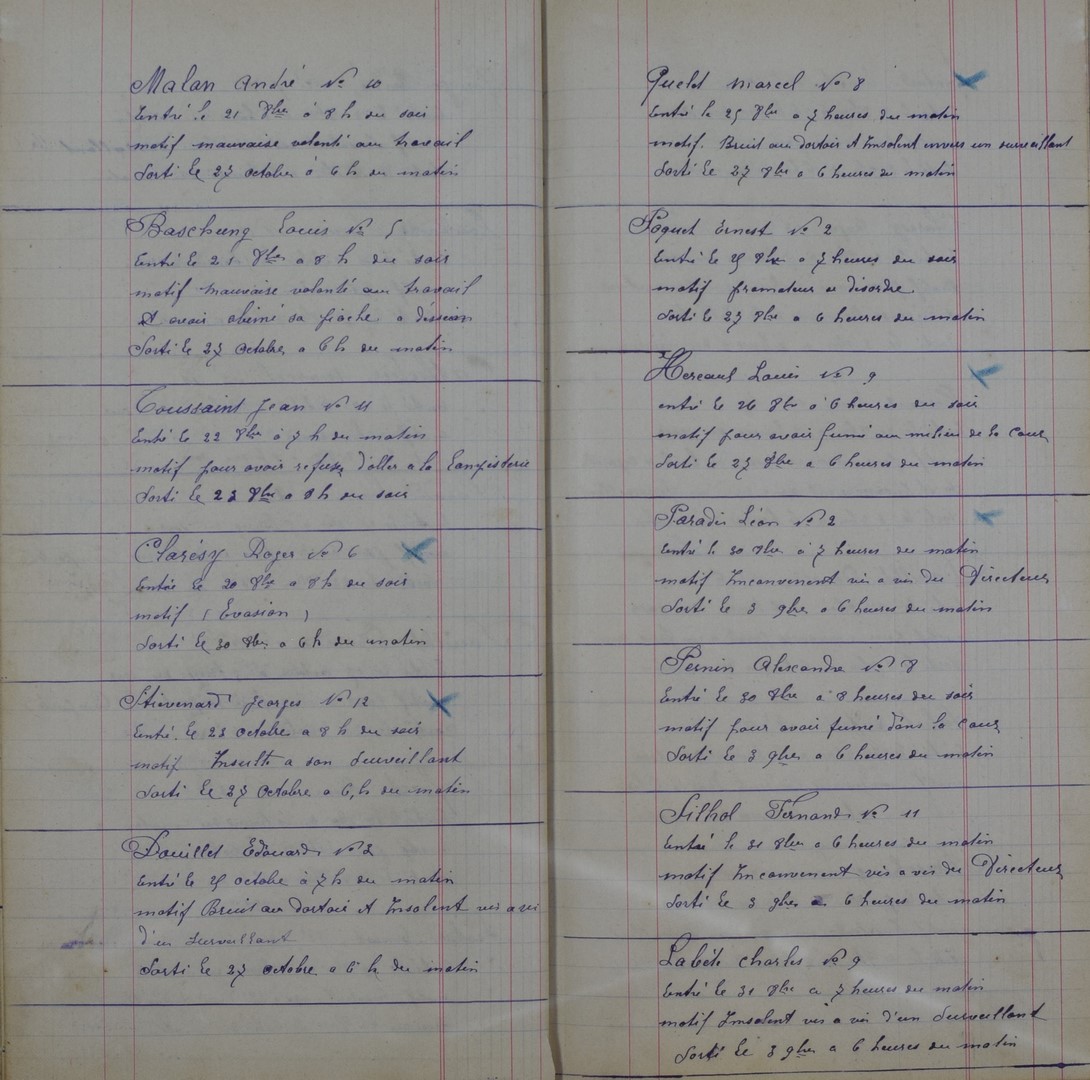 Malan André No 10
Entré le 21 8bre à 8 h du soir
motif mauvaise volonté au travail
Sorti le 27 octobre à 6 h du matin
Baschung Louis No 5
Entré le 21 8bre a 8 h du soir
motif mauvaise volonté au travail
et avoir abimé sa pioche a dessein
Sorti le 27 Octobre a 6 h du matin
Toussaint Jean No 11
Entré le 22 8bre à 7 h du matin
motif pour avoir refusé d'aller a la lampisterie
Sorti le 8bre a 8 h du soir
Clarésy Roger No 6
Entrée le 20 8bre a 8 h du soir
motif (Evasion)
Sorti le 30 8bre a 6 h du matin
Stievenard Georges No 12
Entré le 23 octobre a 8 h du soir
motif Insulte a son Surveillant
Sorti le 27 Octobre a 6 h du matin
Douillet Edouard No 2
Entré le 25 octobre à 7 h du matin
motif Bruit au dortoir et Insolent vis a vis
d'un Surveillant
Sorti le 27 octobre a 6 h du matin
Quelet Marcel No 8
Entré le 25 8bre a 7 heures du matin
motif. Bruit au dortoir et Insolent envers un surveillant
Sorti le 27 8bre a 6 heures du matin
Poquet Ernest No 2
Entré le 25 8bre a 7 heures du soir
motif promoteur de désordre
Sorti le 27 8bre a 6 heures du matin
Hereaul Louis No 9
entré le 26 8bre à 6 heures du soir
motif pour avoir fumé au milieu de la Cour
Sorti le 27 8bre a 6 heures du matin
Paradis Léon No 2
Entré le 30 8bre à 7 heures du matin
motif Inconvenent vis a vis du Directeur
Sorti le 3 9bre a 6 heures du matin
Pernin Alexandre No 8
Entré le 30 8bre à 8 heures du soir
motif pour avoir fumé dans la Cour
Sorti le 3 9bre a 6 heures du matin
Filhol Fernand No 11
Entré le 31 8bre a 6 heures du matin
motif Inconvenent vis a vis du Directeur
Sorti le 3 9bre a 6 heures du matin
Labête Charles No 9
Entré le 31 8bre a 7 heures du matin
motif Insolent vis a vis d'un Surveillant
Sorti le 3 9bre a 6 heures du matin